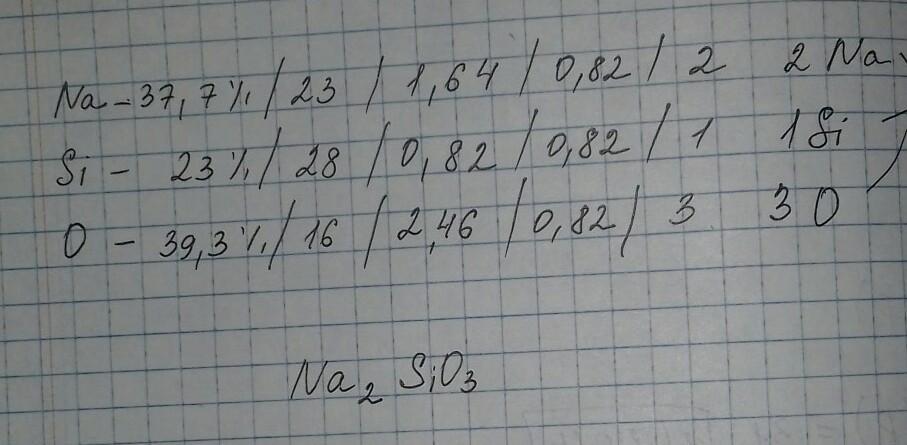 Na - 37,7% / 23 / 1,64 / 0,82 / 2 2 Na
Si - 23% / 28 / 0,82 / 0,82 / 1 1 Si
O - 39,3% / 16 / 2,46 / 0,82 / 3 3 O
Na₂SiO₃